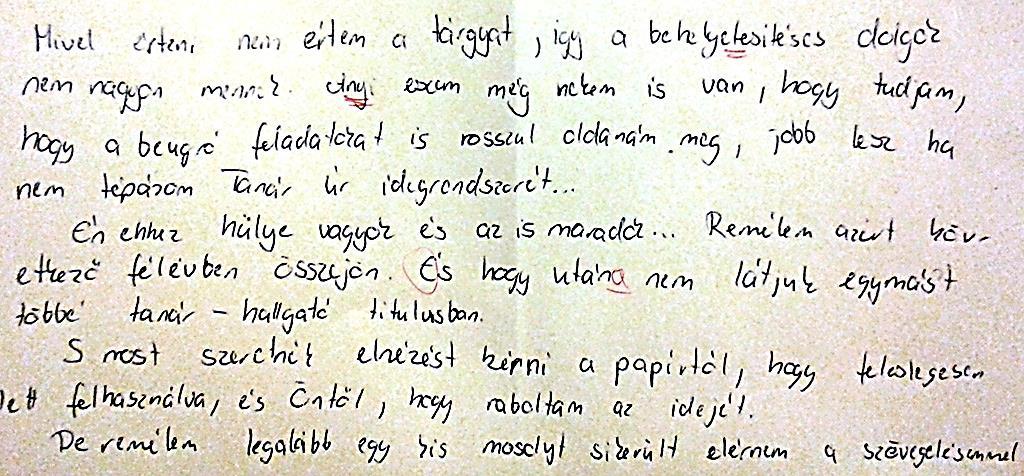 Mivel érteni nem értem a tárgyat, így a behelyetesitéses dolgok
nem nagyon mennek. Anyi eszem még nekem is van, hogy tudjam,
hogy a beugró feladatokat is rosszul oldanám meg, jobb lesz ha
nem tépázom Tanár Úr idegrendszerét...
Én ehhez hülye vagyok és az is maradok... Remélem azért köv-
etkező félévben összejön. És hogy utána nem látjuk egymást
többé tanár - hallgató titulusban.
S most szeretnék elnézést kérni a papírtól, hogy feleslegesen
lett felhasználva, és Öntől, hogy raboltam az idejét.
De remélem legalább egy kis mosolyt sikerült elérnem a szövegelésemmel